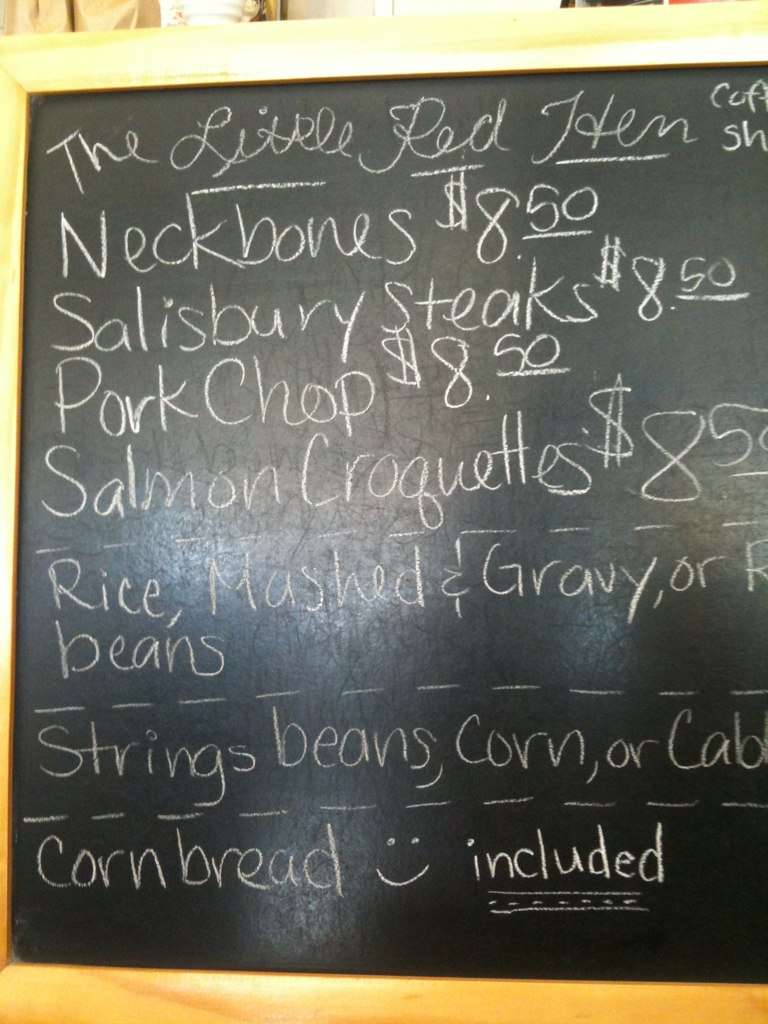 The Little Red Hen
Neckbones $8.50
Salisbury Steaks $8.50
Pork Chop $8.50
Salmon Croquettes $8.50
Rice, Mashed & Gravy, or
beans
Strings beans, Corn, or
Cornbread :) included